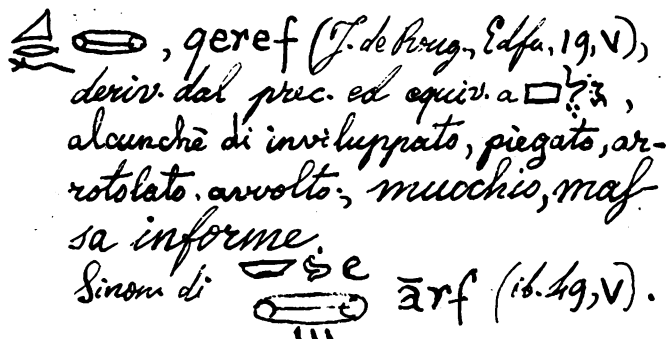 , qeref (J. de Roug., Edfu, 19, V),
deriv. dal prec. ed equiv. a ,
alcunchè di inviluppato, piegato, ar-
rotolato. avvolto; mucchio, maſ
sa informe.
Sinom di ārf (ib. 49, V).